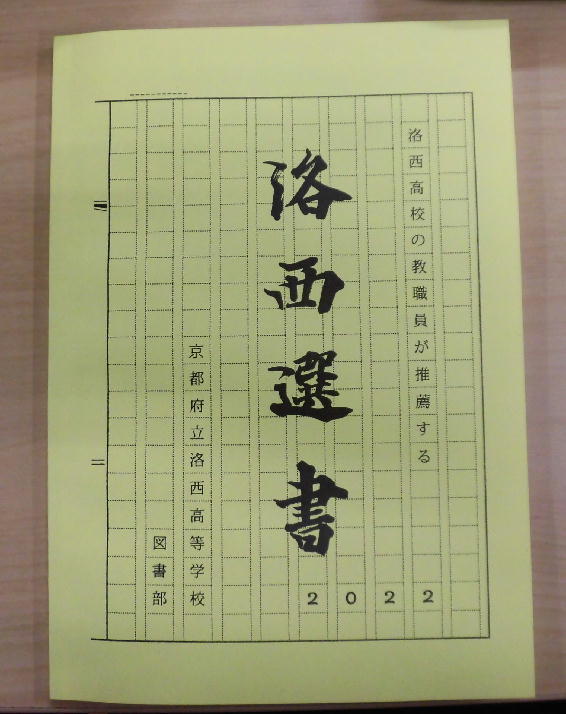 洛西高校の教職員が推薦する
洛西選書
2022
京都府立洛西高等学校
図書部